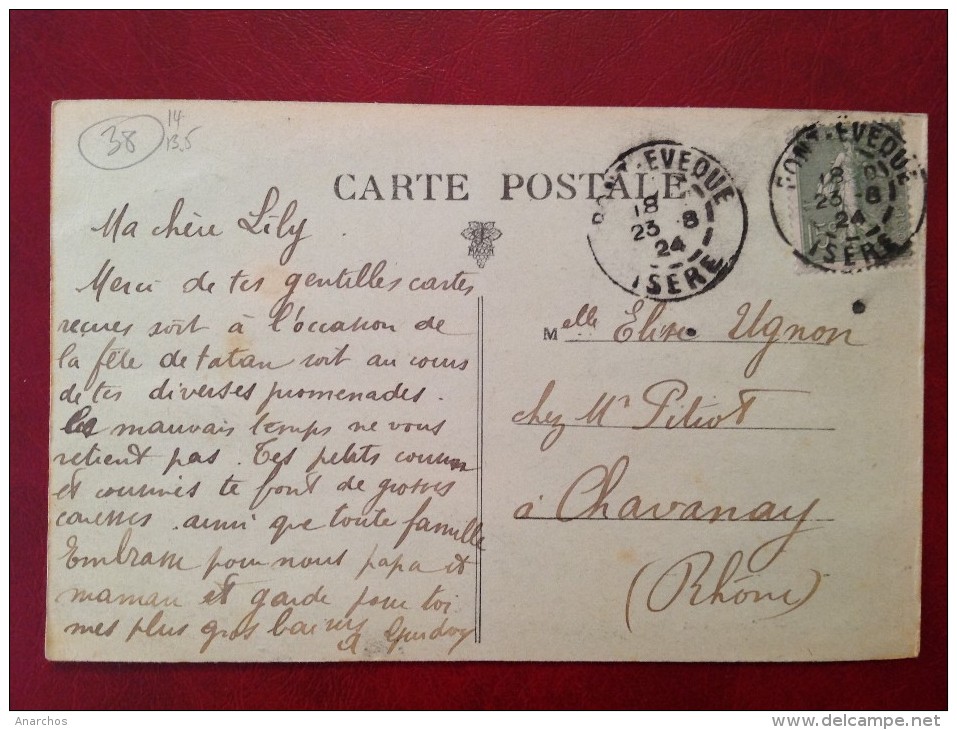 38
14
13.5
CARTE POSTALE
PONT-EVEQUE
18
23 8
24
ISERE
PONT-EVEQUE
18
23 8
24
ISERE
Ma chère Lily
Merci de tes gentilles cartes
reçues soit à l'occasion de
la fête de tatan soit au cours
de tes diverses promenades.
Le mauvais temps ne vous
retient pas. Tes petits cousins
et cousines te font de grosses
caresses ainsi que toute famille
Embrasse pour nous papa et
maman et garde pour toi
mes plus gros baisers
A
Melle Elise Ugnon
chez Mr Pitiot
à Chavanay
(Rhône)
Anarchos
www.delcampe.net